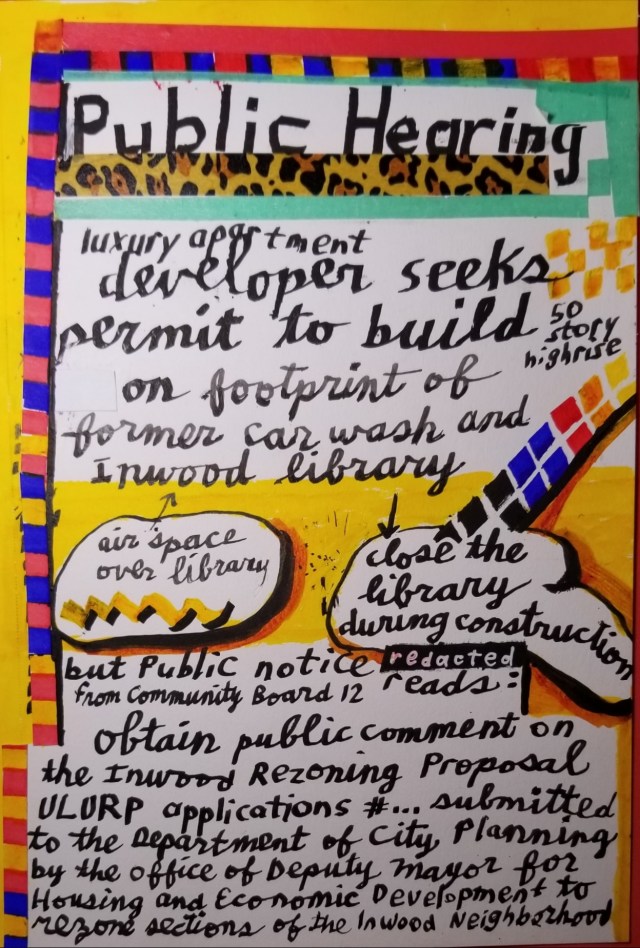 Public Hearing
luxury apartment
developer seeks
permit to build
50
story
highrise
on footprint of
former car wash and
Inwood library
air space
over library
close the
library
during construction
but Public notice redacted
from Community Board 12 reads:
Obtain public comment on
the Inwood Rezoning Proposal
ULURP applications #... submitted
to the Department of City Planning
by the office of Deputy Mayor for
Housing and Economic Development to
rezone sections of the Inwood Neighborhood